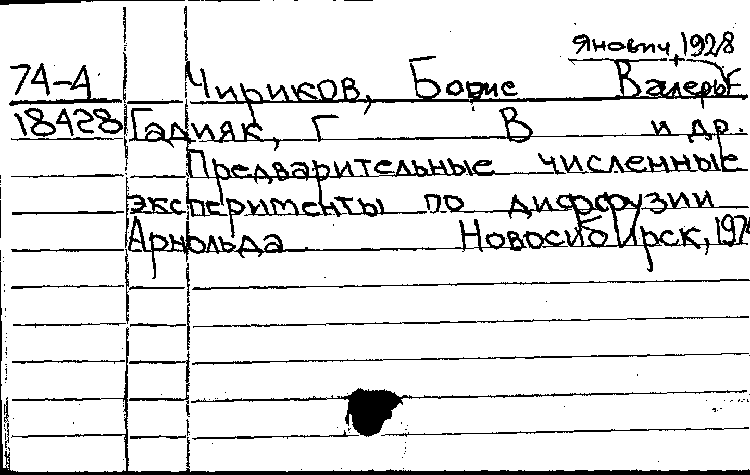 Янович, 1928
74-4 Чириков, Борис Валерь
18428 Гадияк, Г В и др.
Предварительные численные
эксперименты по диффузии
Арнольда Новосибирск, 197